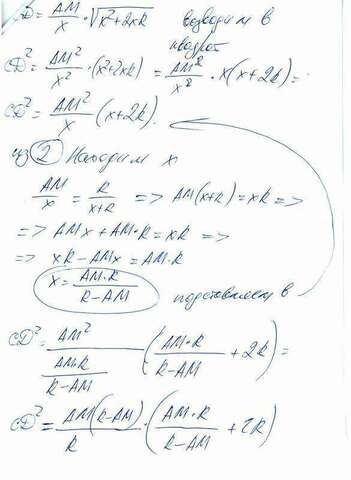 CD = AM/x · √(x²+2xR) возводим в
квадрат
CD² = AM²/x² · (x²+2xR) = AM²/x² · x(x+2R) =
CD² = AM²/x (x+2R).
из (2) Находим x
AM/x = R/(x+R) => AM(x+R)=xR =>
=> AMx + AM·R = xR =>
=> xR - AMx = AM·R
x = AM·R/(R-AM) подставляем в
CD² = AM²/(AM·R/(R-AM)) (AM·R/(R-AM) + 2R) =
CD² = AM(R-AM)/R · (AM·R/(R-AM) + 2R)